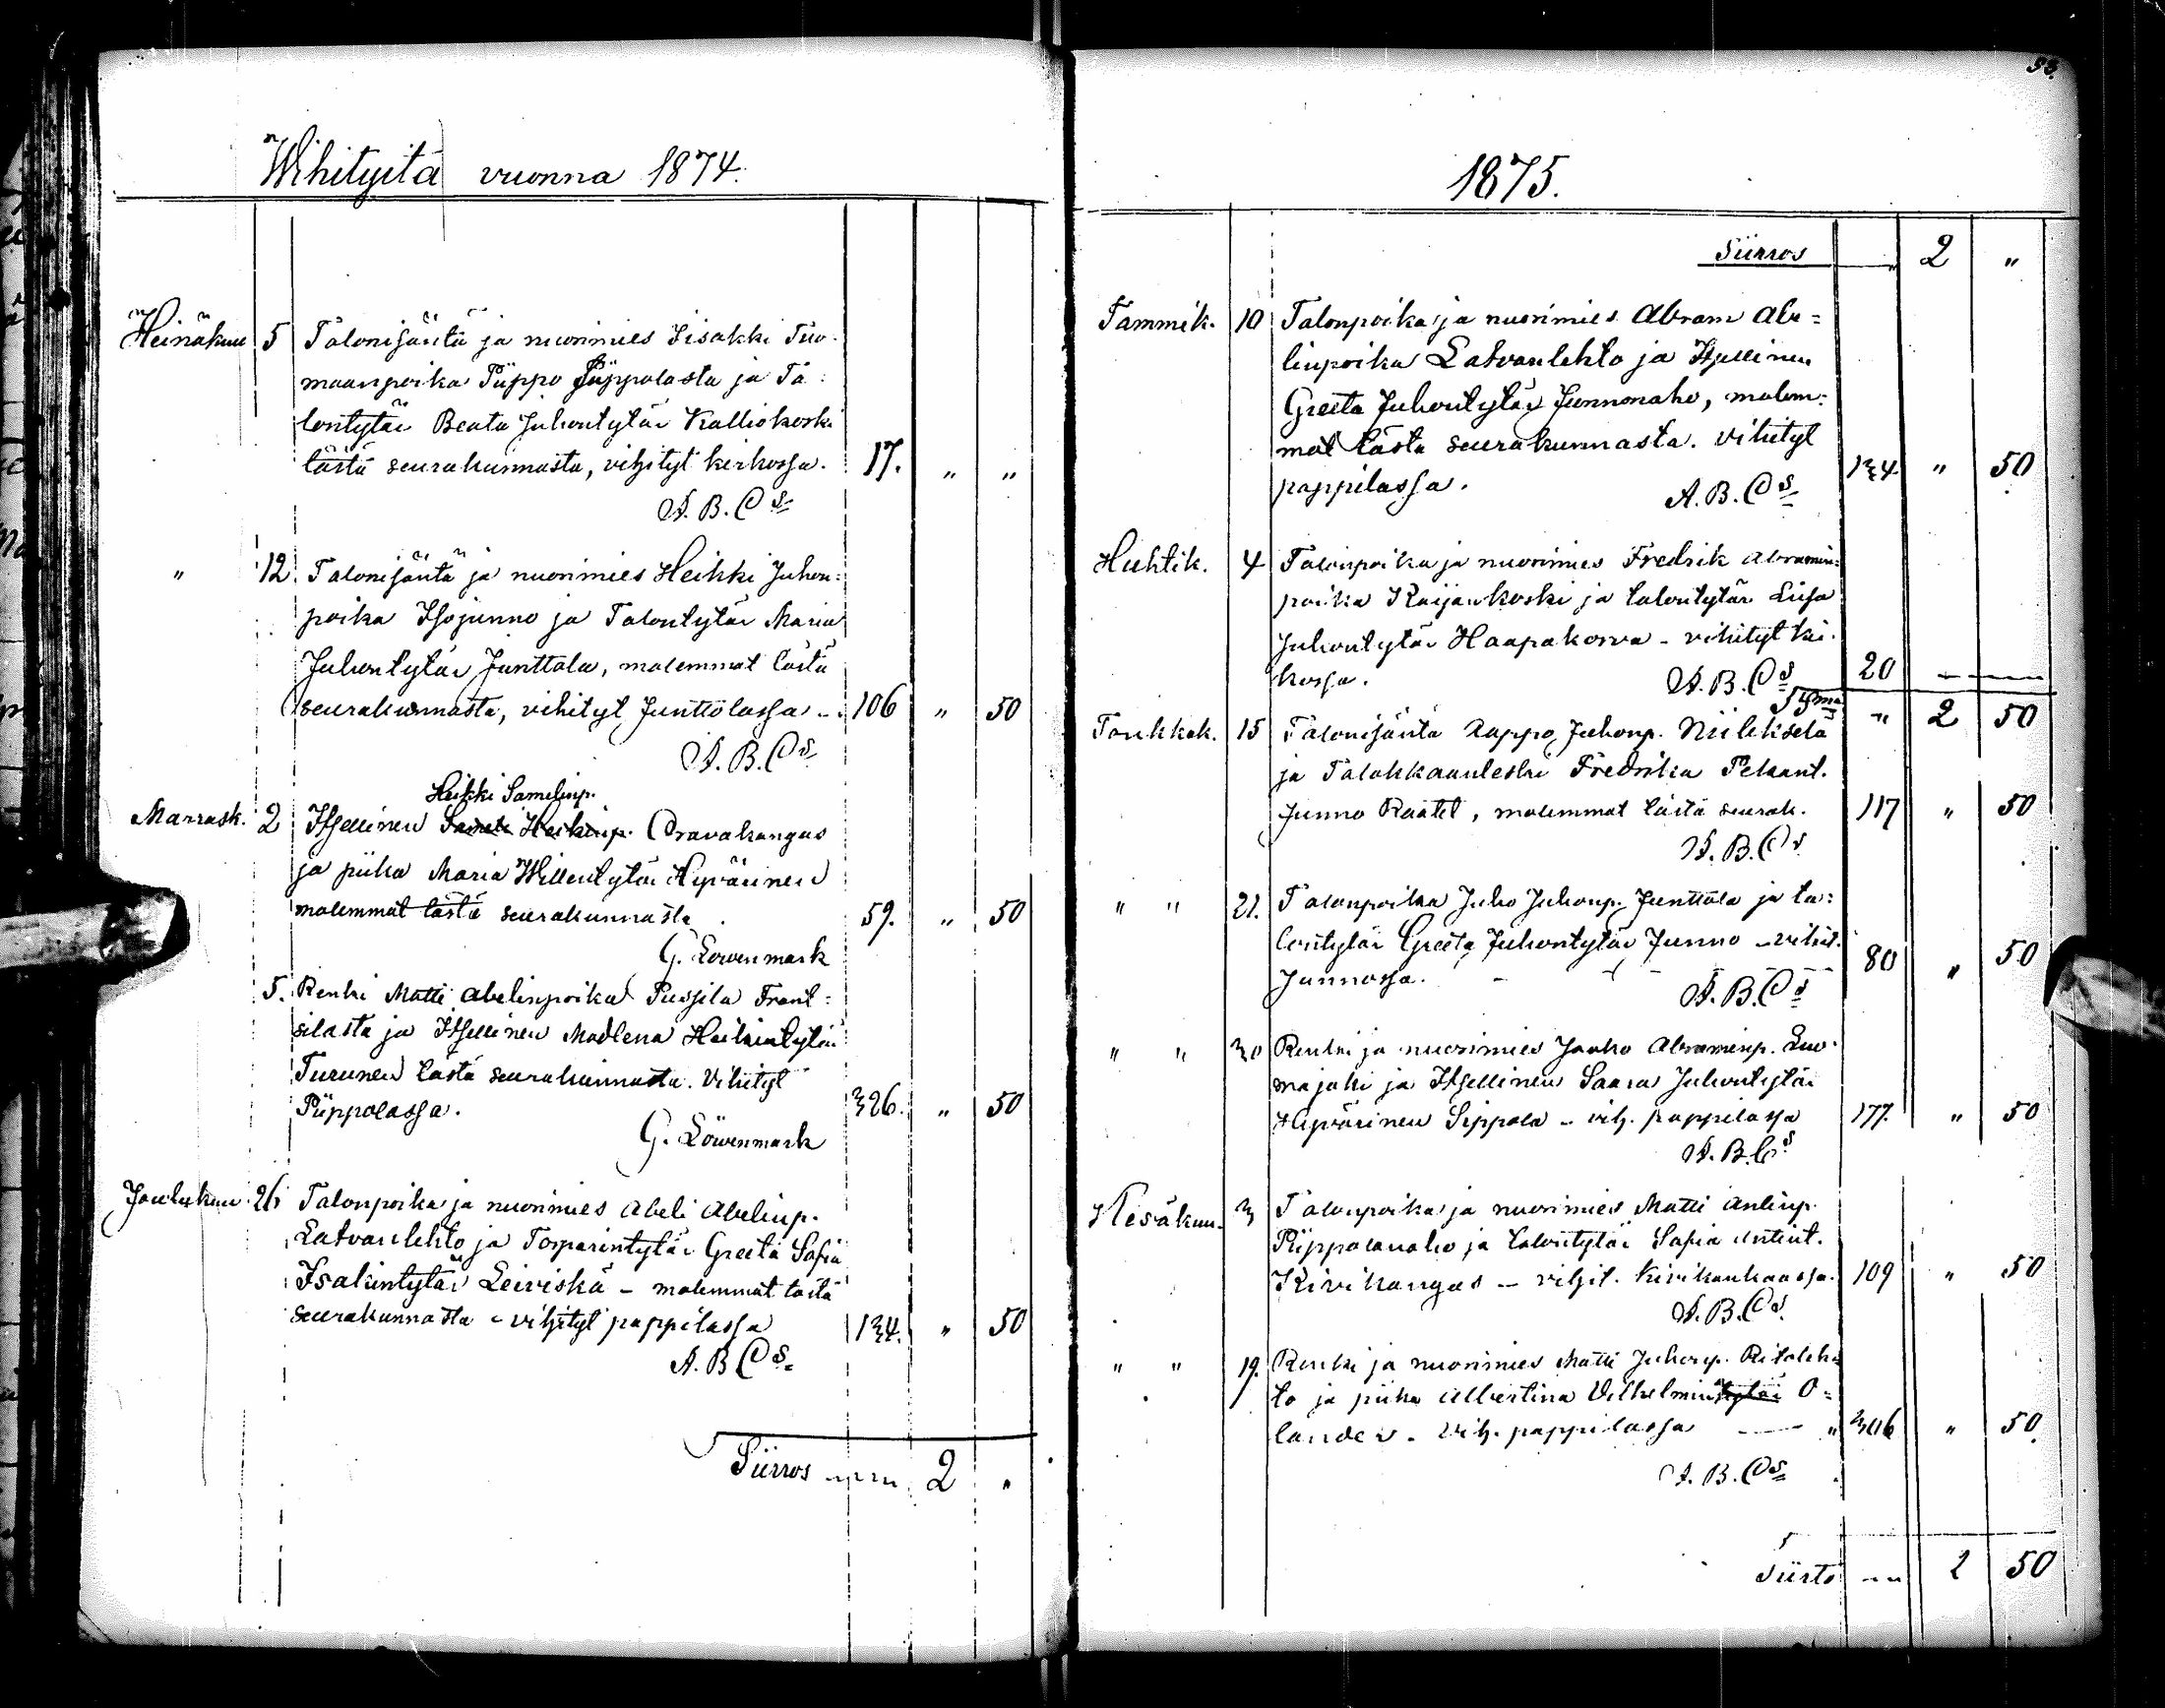 Wihityitä vuonna 1874.
Heinäkuu 5 Talonisäntä ja nuorimies Iisakki Tuo-
maanpoika Piippo Piippolasta ja Ta-
lontytär Beata Juhontytär Kalliokoski
tästä seurakunnasta, vihityt kirkossa. 17. " "
A. B. Cs
" 12. Talonisäntä ja nuorimies Heikki Juhon-
poika Isojunno ja Talontytär Maria
Juhontytär Junttola, molemmat tästä
seurakunnasta, vihityt Junttolassa - 106 " 50
A. B. Cs
Heikki Samelinp.
Marrask. 2 Itsellinen Sameli Heikinp. Oravakangas
ja piika Maria Willentytär Hyvärinen
molemmat tästä seurakunnasta. 59. " 50
G. Löwenmark
5. Renki Matti Abelinpoika Pussila Frant-
silasta ja Itsellinen Madlena Heikintytär
Turunen tästä seurakunnasta. Vihityt
Piippolassa. 326. " 50
G. Löwenmark
Joulukuu 26 Talonpoika ja nuorimies Abeli Abelinp.
Latvanlehto ja Torparintytär Greeta Sofia
Isakintytär Leiviskä - molemmat tästä
seurakunnasta - vihityt pappilassa 134. " 50
A. B. Cs
Siirros 2 "
53.
1875.
Siirros 2 "
Tammik. 10 Talonpoika ja nuorimies Abram Abe-
linpoika Latvanlehto ja Itsellinen
Greeta Juhontytär Junnonaho, molem-
mat tästä seurakunnasta. vihityt
pappilassa. 134. " 50
A. B. Cs
Huhtik. 4 Talonpoika ja nuorimies Fredrik Abramin-
poika Raijankoski ja talontytär Liisa
Juhontytär Haapakorva - vihityt kir-
kossa. 20 — —
A. B. Cs
" 2 50
Toukkok. 15 Talonisäntä Aappo Juhonp. Niileksela
ja Talokkaanleski Fredrika Pekant.
Junno Raatet, molemmat tästä seurak. 117 " 50
A. B. Cs
" " 21. Talonpoika Juho Juhonp. Junttola ja ta-
lontytär Greeta Juhontytär Junno - vihit.
Junnossa. 80 " 50
A. B. Cs
" " 30 Renki ja nuorimies Jaako Abraminp. Luo-
majoki ja Itsellinen Saara Juhontytär
Hyvärinen Sippola - vih. pappilassa 177. " 50
A. B. Cs
Kesäkuu. 3 Talonpoika ja nuorimies Matti Antinp.
Piippolanaho ja talontytär Sofia Antint.
Kivikangas - vihit. kivikankaassa. 109 " 50
A. B. Cs.
" " 19. Renki ja nuorimies Matti Juhonp. Ritoleh-
to ja piika Albertina Vilhelmintytär O-
lander. vih. pappilassa — " 306 " 50
A. B. Cs
Siirto 2 50